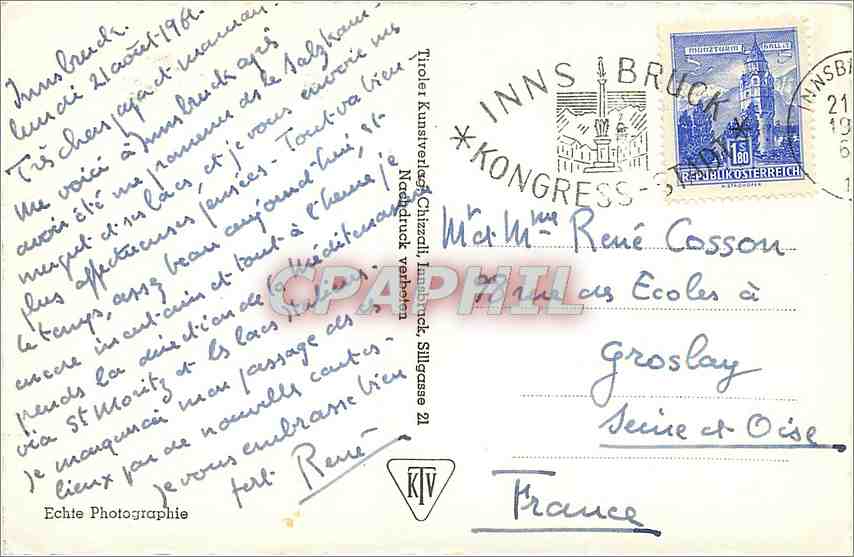 Innsbruck.
lundi 21 août 1961.
Très chers papa et maman.
Me voici à Innsbruck après
avoir été me promener ds le Salzkam-
mergut et ses lacs, et je vous envoie mes
plus affectueuses pensées - Tout va bien
le temps, assez beau aujourd'hui, est
encore incertain et tout à l'heure je
prends la direction de la Méditerranée
via St Moritz et les lacs italiens.
Je marquerai mon passage ds ces
lieux par de nouvelles cartes -
je vous embrasse bien
fort. René
Echte Photographie
Tiroler Kunstverlag Chizzali, Innsbruck, Sillgasse 21
Nachdruck verboten
KTV
INNSBRUCK
*KONGRESS-STADT*
MÜNZTURM HALL i.T.
S 1.80
REPUBLIK ÖSTERREICH
INNSB
21
19
6
1
Mr et Mme René Cosson
78 rue des Ecoles à
Groslay
Seine et Oise
France
CPAPHIL